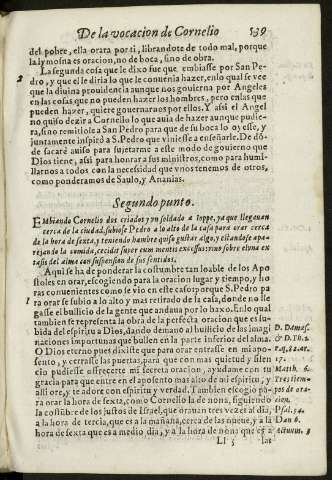 De la vocacion de Cornelio 539
del pobre, ella orara por ti, librandote de todo mal, porque
la lymosna es oracion, no de boca, sino de obra.
2 La segunda cosa que le dixo fue que embiasse por San Pe-
dro, y que el le diria lo que le conuenia hazer, en lo qual se vee
que la diuina prouidencia aunque nos gouierna por Angeles
en las cosas que no pueden hazer los hombres, pero en las que
pueden hazer, quiere gouernarnos por ellos. Y assi el Angel
no quiso dezir a Cornelio lo que auia de hazer aunque pudie-
ra, sino remitiole a San Pedro para que de su boca lo oyesse, y
juntamente inspirò a S. Pedro que viniesse a enseñarle. De dõ-
de sacarè auiso para sujetarme a este modo de gouierno que
Dios tiene, assi para honrar a sus ministros, como para humi-
llarnos a todos con la necesidad que vnos tenemos de otros,
como ponderamos de Saulo, y Ananias.
Segundo punto.
Embiando Cornelio dos criados y vn soldado a Ioppe, ya que llegauan
cerca de la ciudad, subiose Pedro a lo alto de la casa para orar cerca
de la hora de sexta, y teniendo hambre quiso gustar algo, y estandose apa-
rejando la comida, cecidit super eum mentis excessus: vino sobre el vna ex-
tasis del alma con suspension de sus sentidos.
1 Aqui se ha de ponderar la costumbre tan loable de los Apo-
stoles en orar, escogiendo para la oracion lugar y tiempo, y ho
ras conuenientes como se vio en este caso: porque S. Pedro pa
ra orar se subio a lo alto y mas retirado de la casa, donde no lle
gasse el bullicio de la gente que andaua por lo baxo. En lo qual
tambien se representa la obra de la perfecta oracion que es su-
bida del espiritu a Dios, dando demano al bullicio de las imagi
naciones importunas que bullen en la parte inferior del alma.
O Dios eterno pues dixiste que para orar entrasse en mi apo-
sento, y cerrasse las puertas, para que con mas quietud y silen
cio pudiesse ofrecerte mi secreta oracion, ayudame con tu
gracia para que entre en el aposento mas alto de mi espiritu, y
alli ore, y te adore con espiritu y verdad. Tambien escogio pa-
ra orar la hora de sexta, como Cornelio la de nona, siguiendo
la costũbre de los justos de Israel, que orauan tres vezes al dia,
a la hora de tercia, que es a la mañana, cerca de las nueue, y a la
hora de sexta que es a medio dia, y a la hora de nona que es a
D. Damas.
& D. Th. 2.
2. q. 82. ar.
17.
Math. 6.
Tres tiem-
pos de ora-
cion.
Psal. 54.
Dan 6.
Actuum. 3
Ll 3 las